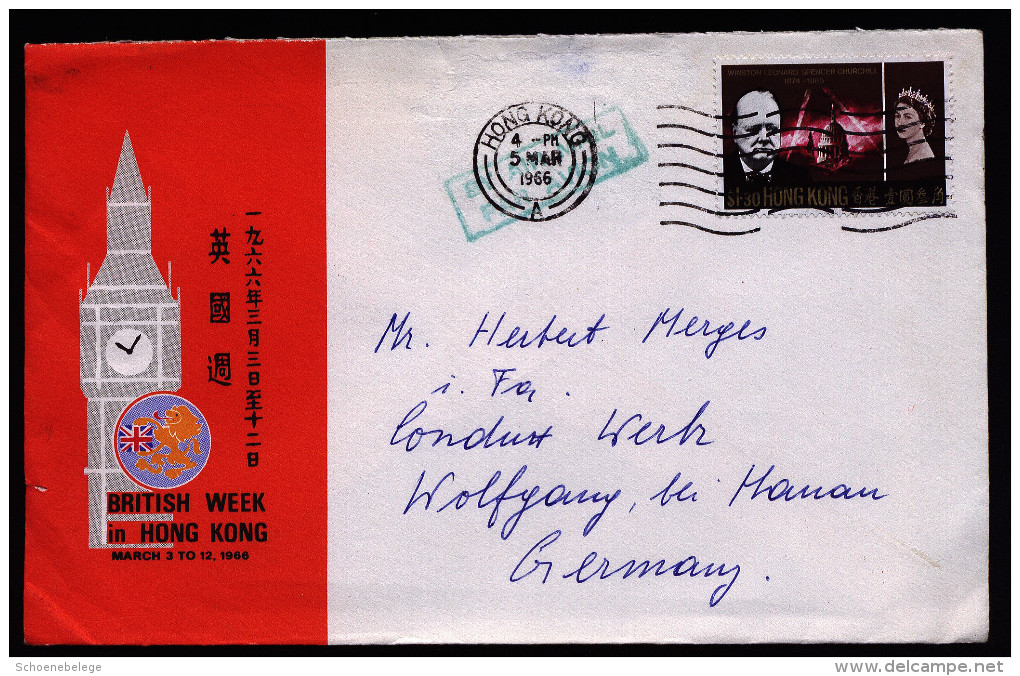 WINSTON LEONARD SPENCER CHURCHILL
1874-1965
$1·30 HONG KONG 香港 壹圓叁角
HONG KONG
4 - PM
5 MAR
1966
A
一九六六年三月三日至十二日
英國週
BRITISH WEEK
in HONG KONG
MARCH 3 TO 12, 1966
Mr. Herbert Merges
i. Fa.
Conduxt Werk
Wolfgang, bei Hanau
Germany.
Schoenebelege
www.delcampe.net